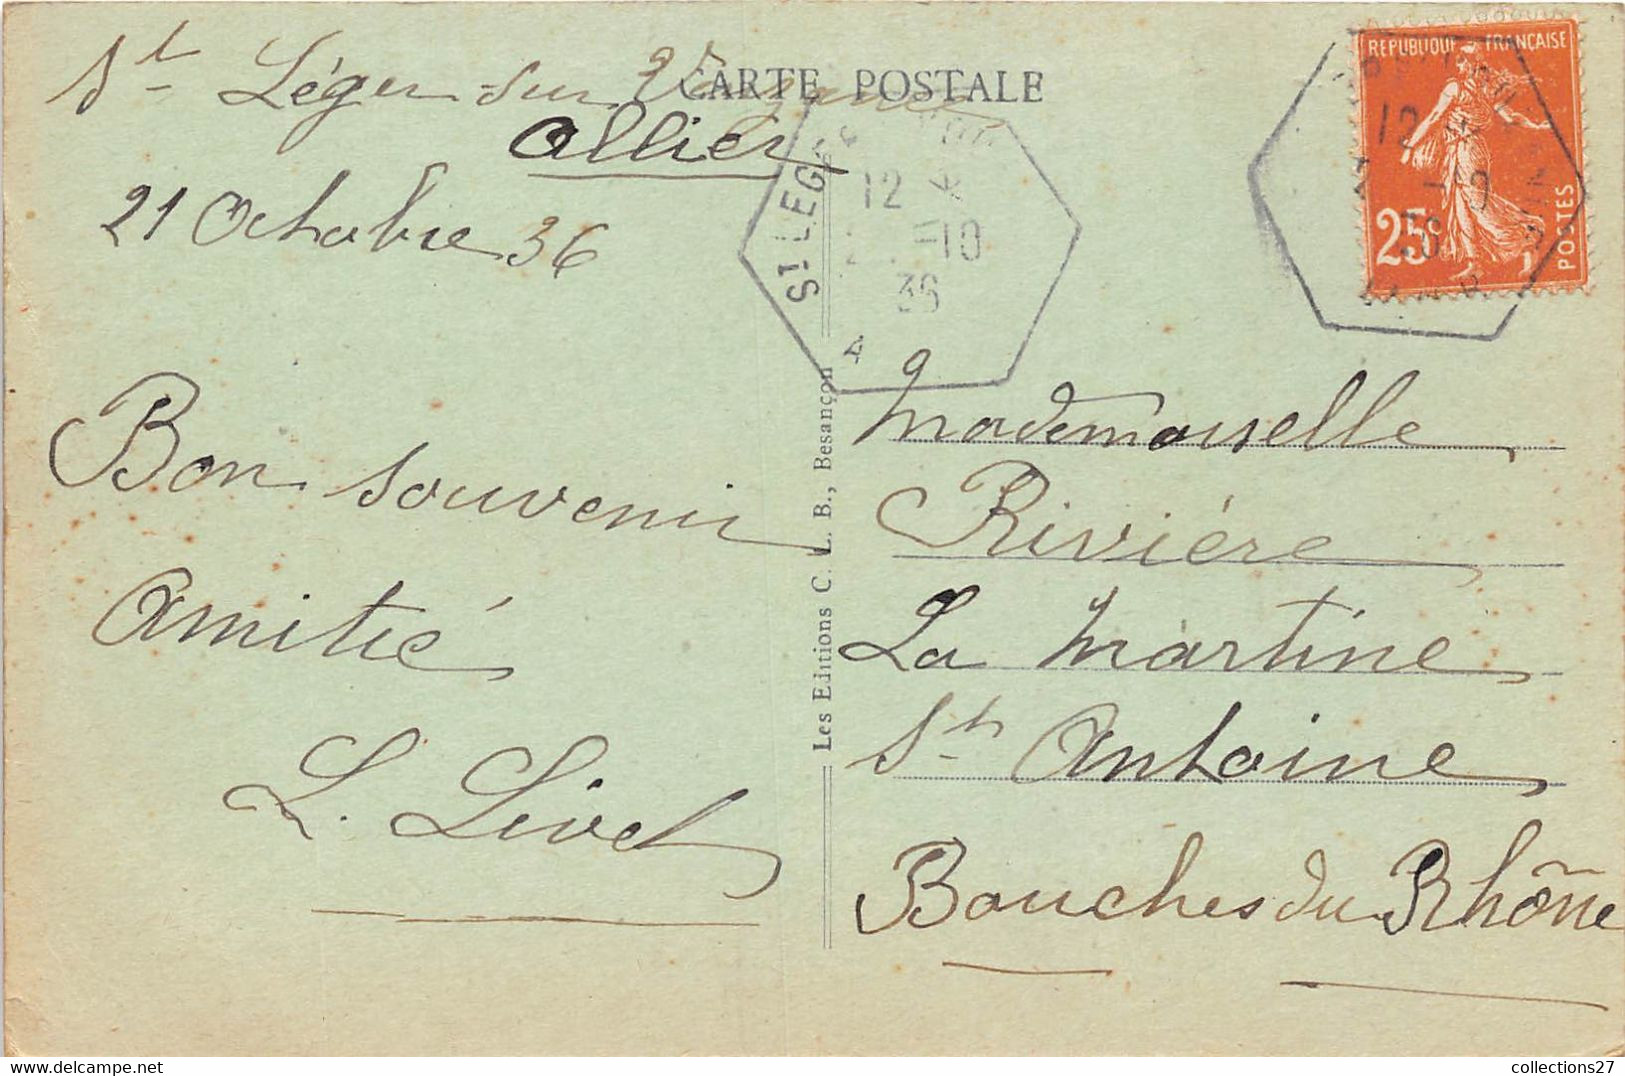 St Léger sur Vouzance
Allier
21 Octobre 36
Bon souvenir
Amitié
L. Livet
CARTE POSTALE
ST LEGER
12
-10
36
A
Les Editions C. L. B., Besançon
REPUBLIQUE FRANÇAISE
25c
POSTES
12
-10
36
Mademoiselle
Rivière
La Martine
St Antoine
Bouches du Rhône
collections27